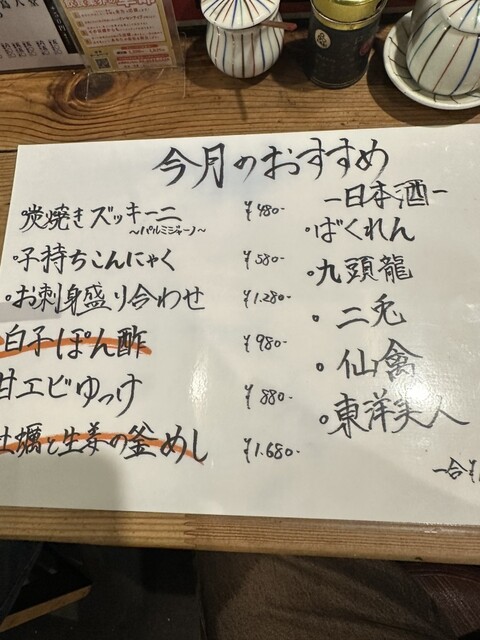 今月のおすすめ
炭焼きズッキーニ ¥480-
〜パルミジャーノ〜
・子持ちこんにゃく ¥580-
・お刺身盛り合わせ ¥1.280-
白子ぽん酢 ¥980-
甘エビゆっけ ¥880-
牡蠣と生姜の釜めし ¥1.680-
-日本酒-
・ばくれん
・九頭龍
・二兎
・仙禽
・東洋美人
一合¥